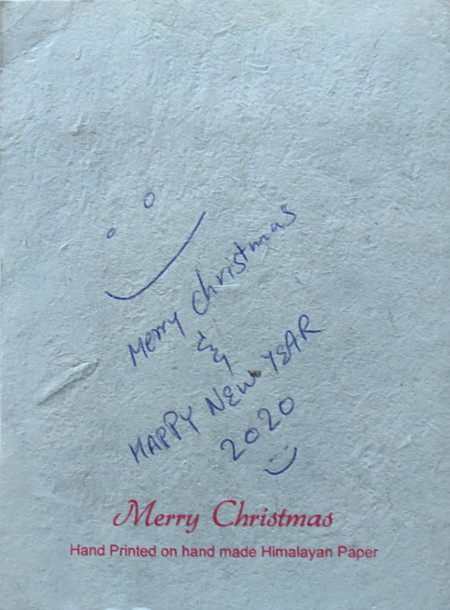 Merry Christmas
&
HAPPY NEW YEAR
2020
Merry Christmas
Hand Printed on hand made Himalayan Paper